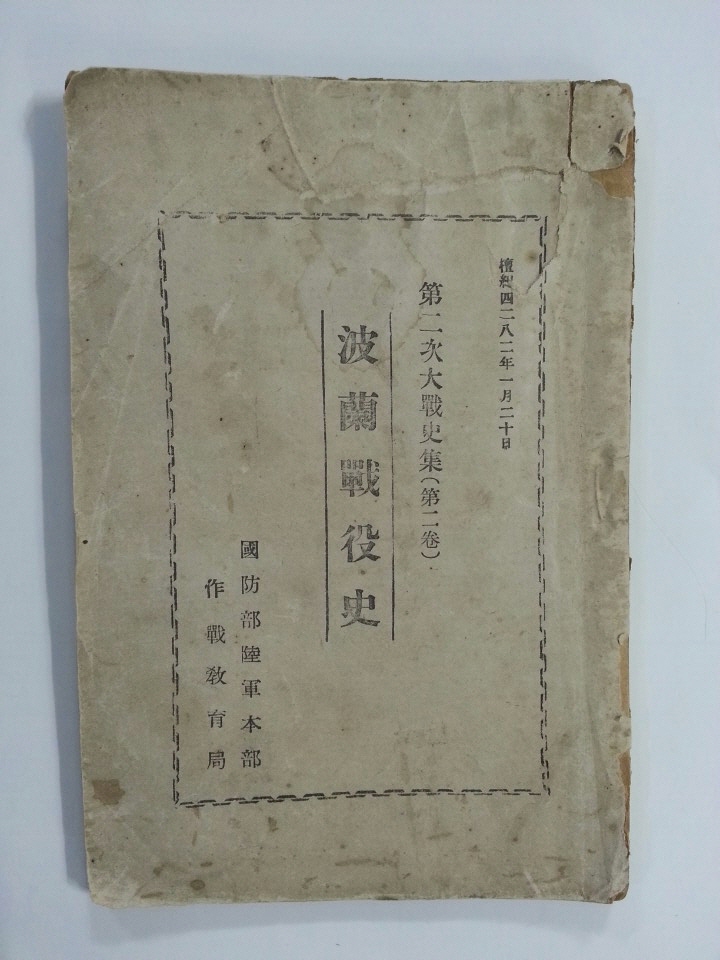 檀紀四二八二年一月二十日
第二次大戰史集(第二卷)
波蘭戰役史
國防部陸軍本部
作戰敎育局